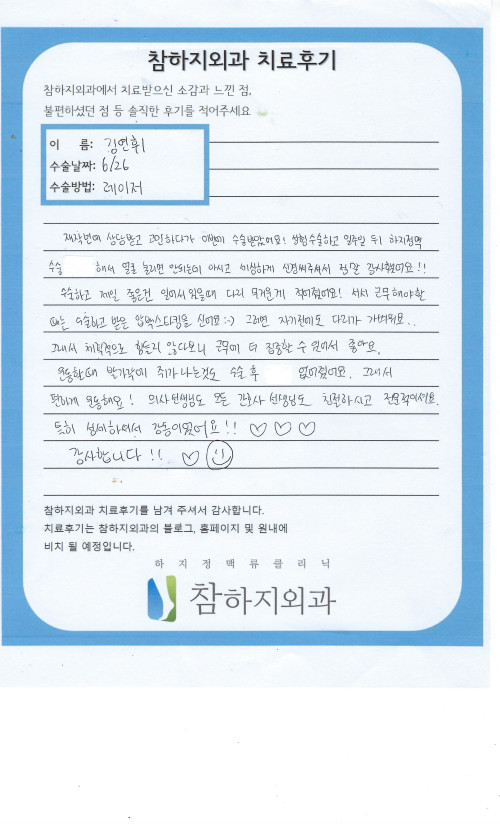 참하지외과 치료후기
참하지외과에서 치료받으신 소감과 느낀 점,
불편하셨던 점 등 솔직한 후기를 적어주세요
이 름: 김연휘
수술날짜: 6/26
수술방법: 레이저
재작년에 상담받고 고민하다가 이번에 수술받았어요! 쌍컴수술하고 일주일 뒤 하지정맥
수술 해서 얼굴 눌리면 안되는데 아시고 세심하게 신경써주셔서 정말 감사했어요!!
수술하고 제일 좋은건 일어서있을때 다리 무거운게 적어졌어요! 서서 근무해야할
때는 수술하고 받은 압박스타킹을 신어요 :-) 그러면 자기전에도 다리가 가벼워요..
그래서 체력적으로 힘들지 않다보니 근무에 더 집중할 수 있어서 좋아요.
운동할때 발가락에 쥐가 나는것도 수술 후 없어졌어요. 그래서
편하게 운동해요! 의사선생님도 모든 간호사 선생님도 친절하시고 전문적이셔요.
특히 섬세하셔서 감동이었어요!! ♡ ♡ ♡
감사합니다!! ♡
참하지외과 치료후기를 남겨 주셔서 감사합니다.
치료후기는 참하지외과의 블로그, 홈페이지 및 원내에
비치 될 예정입니다.
하지정맥류클리닉
참하지외과